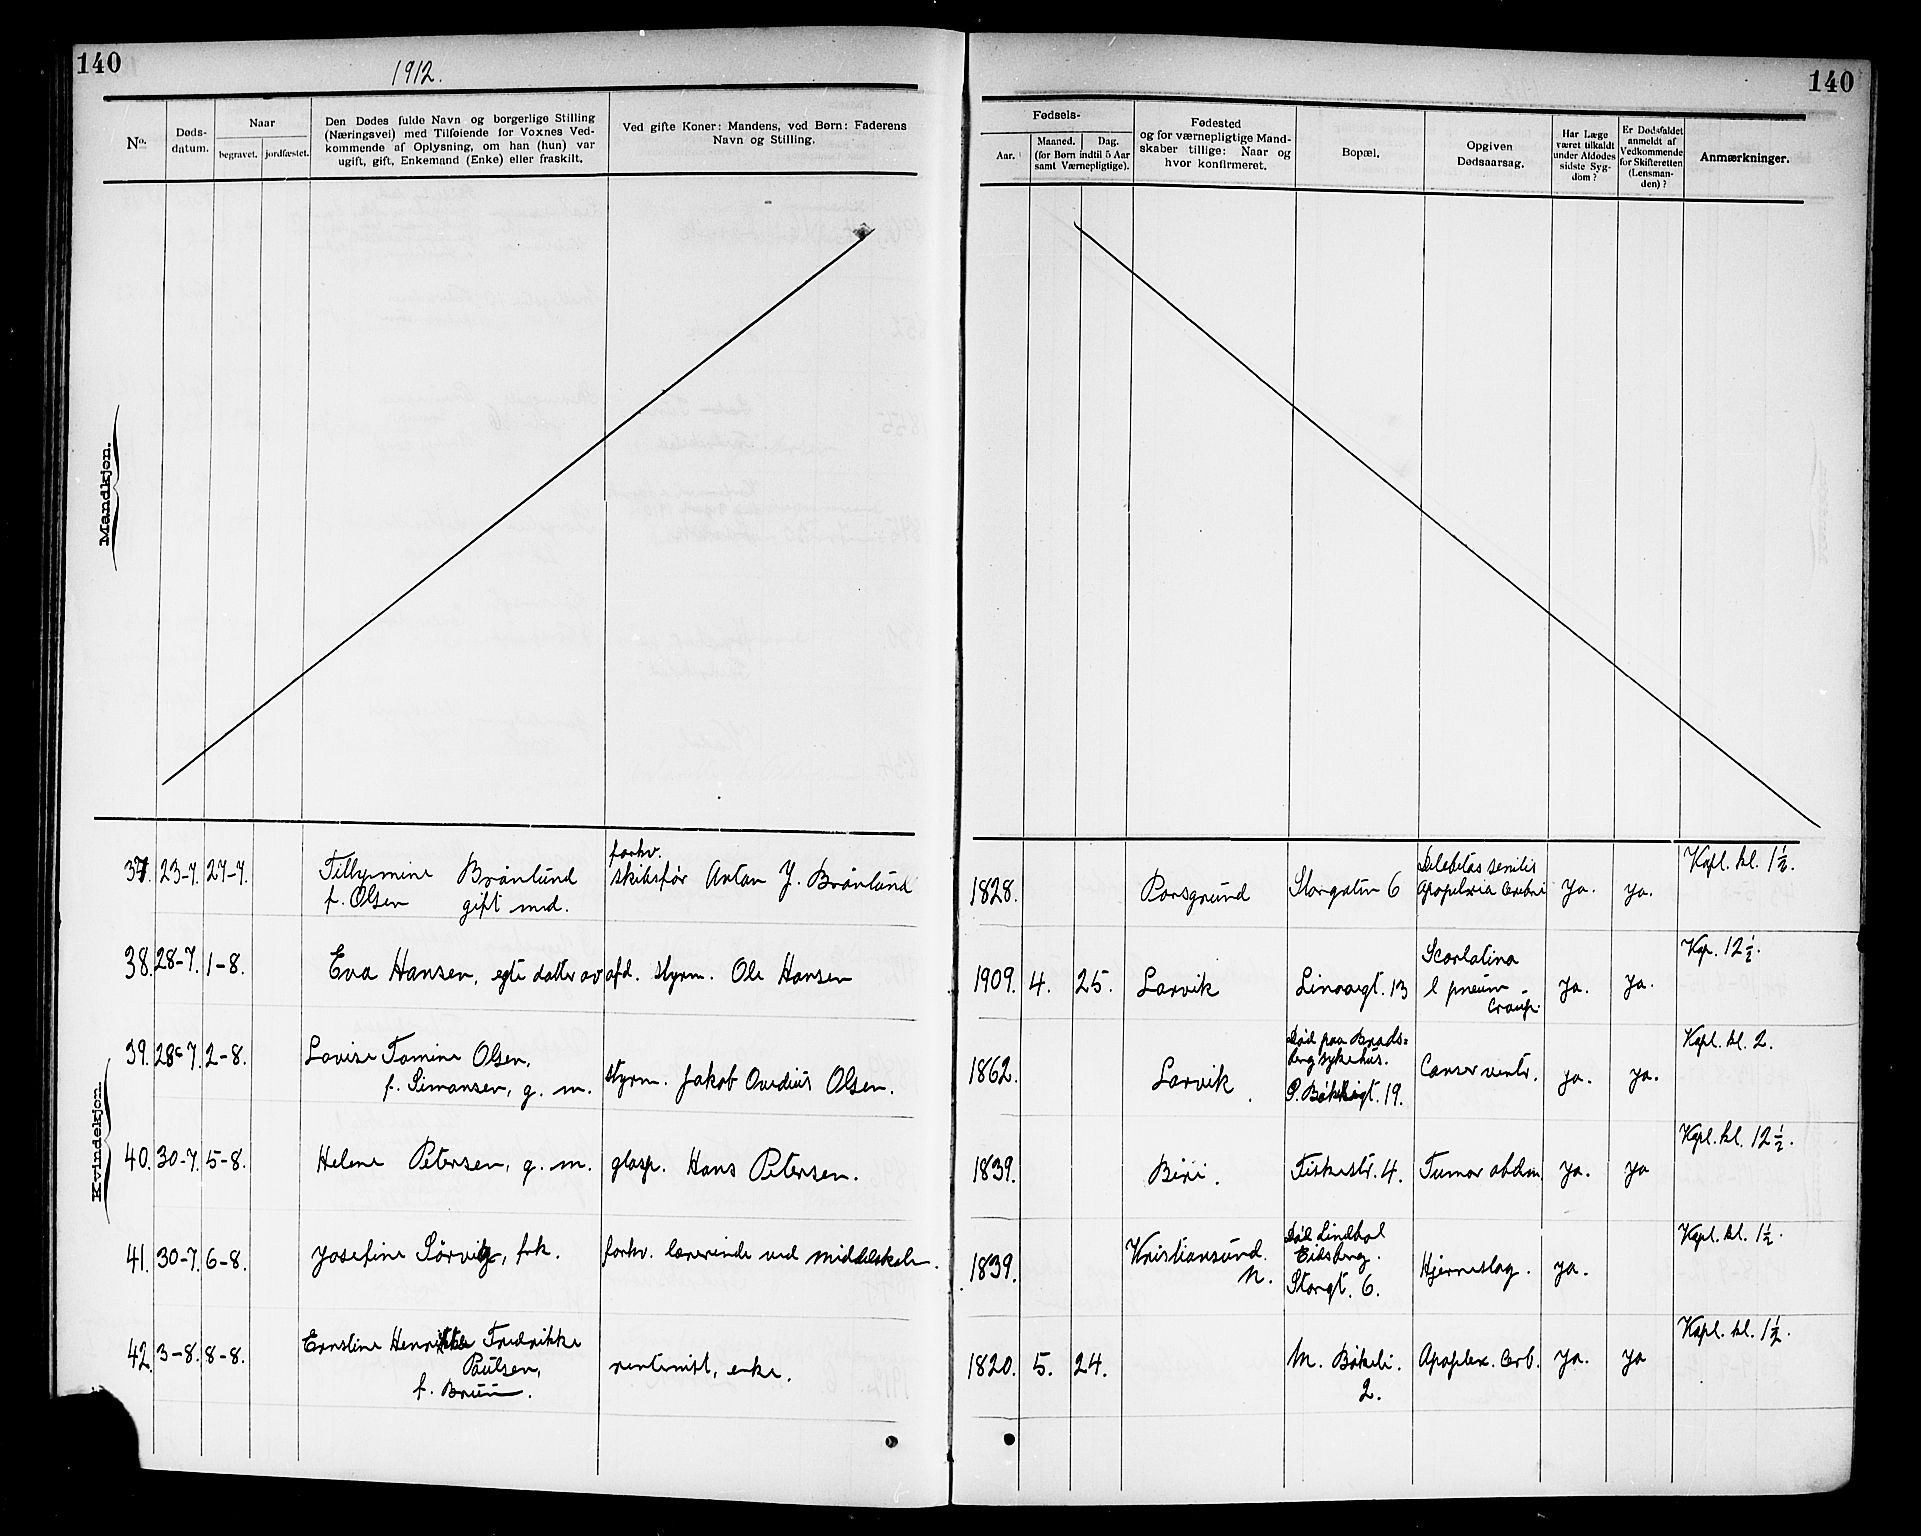 140
1912.
No.
Døds-
datum.
Naar
begravet.
jordfæstet.
Den Dødes fulde Navn og borgerlige Stilling
(Næringsvei) med Tilføiende for Voxnes Ved-
kommende af Oplysning, om han (hun) var
ugift, gift, Enkemand (Enke) eller fraskilt.
Ved gifte Koner: Mandens, ved Børn: Faderens
Navn og Stilling.
140
Fødsels-
Aar.
Maaned.
Dag.
(for Børn indtil 5 Aar
samt Værnepligtige).
Fødested
og for værnepligtige Mand-
skaber tillige: Naar og
hvor konfirmeret.
Bopæl.
Opgiven
Dødsaarsag.
Har Læge
været tilkaldt
under Afdødes
sidste Syg-
dom?
Er Dødsfaldet
anmeldt af
Vedkommende
for Skifteretten
(Lensman-
den)?
Anmærkninger.
Mandkjøn.
Kvindekjøn.
37. 23-7. 27-7.
Brønlund
f. Olsen gift med.
forhv.
skibsfør Anton J. Brønlund
1828. Porsgrund Storgaten 6
Debilitas senilis
Apoplexia Cerebri
ja. ja. Kapl. kl. 1½.
38. 28-7. 1-8. Eva Hansen, egte datter av afd. styrm. Ole Hansen
1909. 4. 25. Larvik 13
Scarlatina
& pneum
Croup.
ja. ja. Kap. 12½.
39. 28-7. 2-8. Lovise Tomine Olsen,
f. Simonsen, g. m. styrm. Jakob Ovedius Olsen.
1862. Larvik
Død paa Brads-
berg sykehus.
19.
Cancer ventr. ja. ja. Kapl. kl. 2.
40. 30-7. 5-8. Helene Petersen, g. m. glasp. Hans Petersen.
1839. Biri. Fiskestr. 4. Tumor abdom ja. ja Kapl. kl. 12½.
41. 30-7. 6-8. Josefine Sørvig, frk. forhv. lærerinde ved middelskolen.
1839. Kristiansund.
N.
Død Lindhol
Eidsberg.
Storgt. 6.
Hjerneslag. ja. Kapl. kl. 1½.
42. 3-8. 8-8. Ernstine Henrikke Fredrikke
Paulsen,
f. Bruun. rentenist, enke.
1820. 5. 24. M. Bøkeli.
2.
Apoplex. Cerb. ja. ja Kapl. kl. 1½.